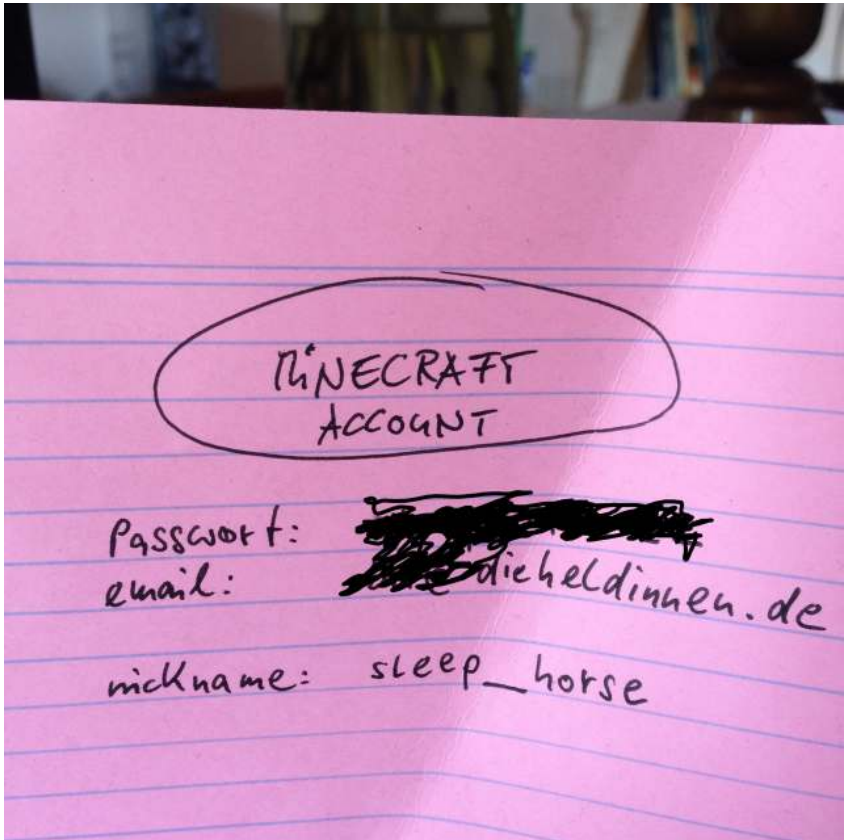 MiNECRAFT
ACCOUNT
Passwort:
email: dieheldinnen.de
nickname: sleep_horse